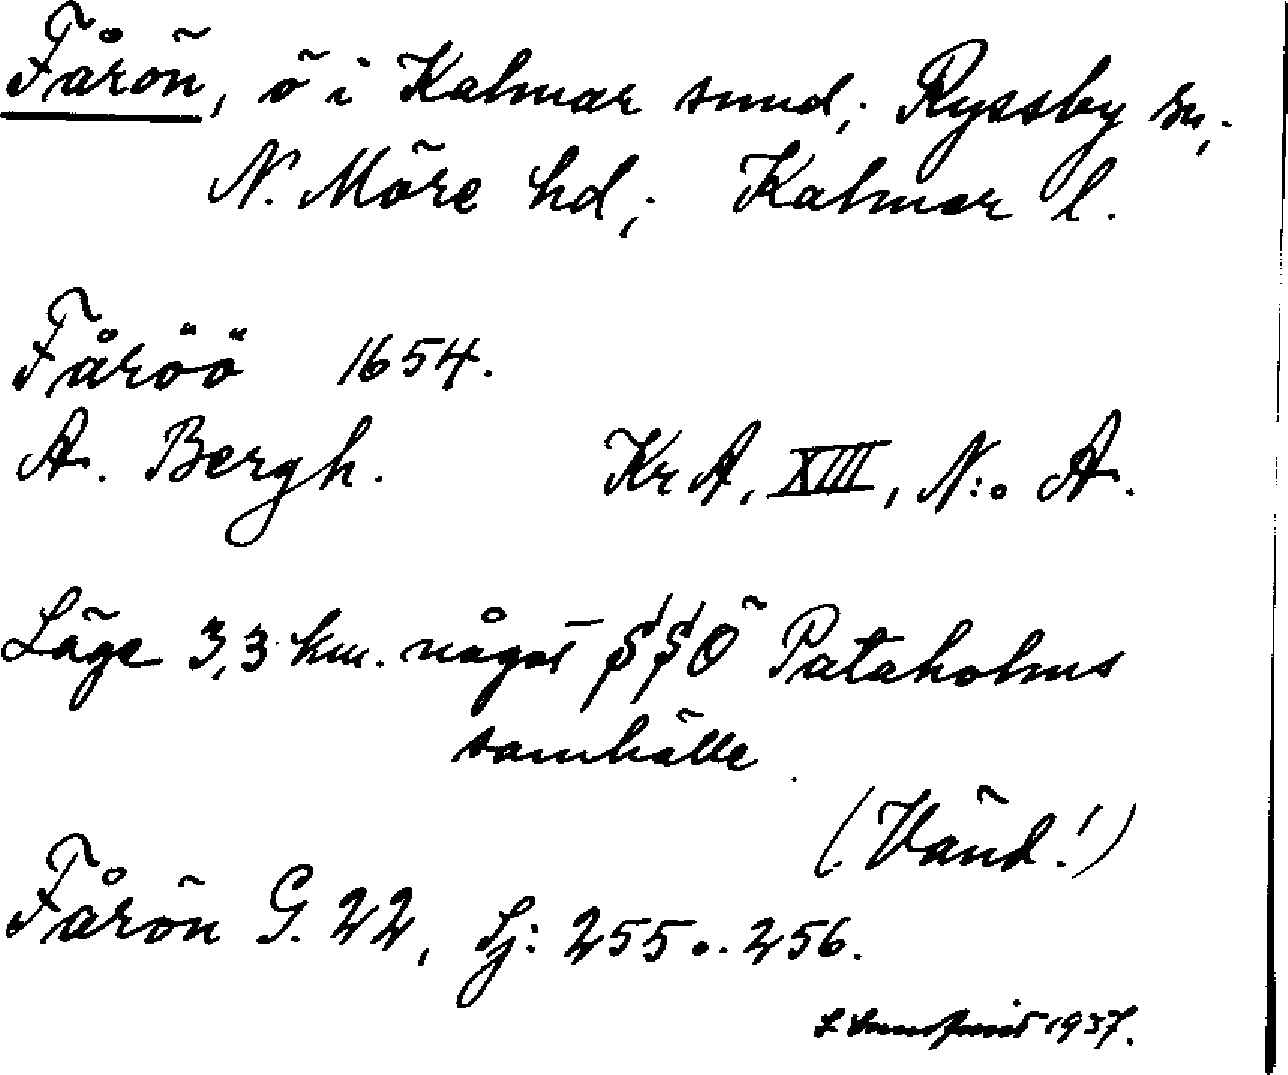 Fårön, ö i Kalmar sund; Ryssby sn;
N. Möre hd; Kalmar l.
Fåröö 1654.
A. Bergh. KrA, XIII, N:o A.
Läge 3,3 km. något SSÖ Pataholms
samhälle.
(Vänd!)
Fårön G. 22, Lj: 255 o. 256.
1937.